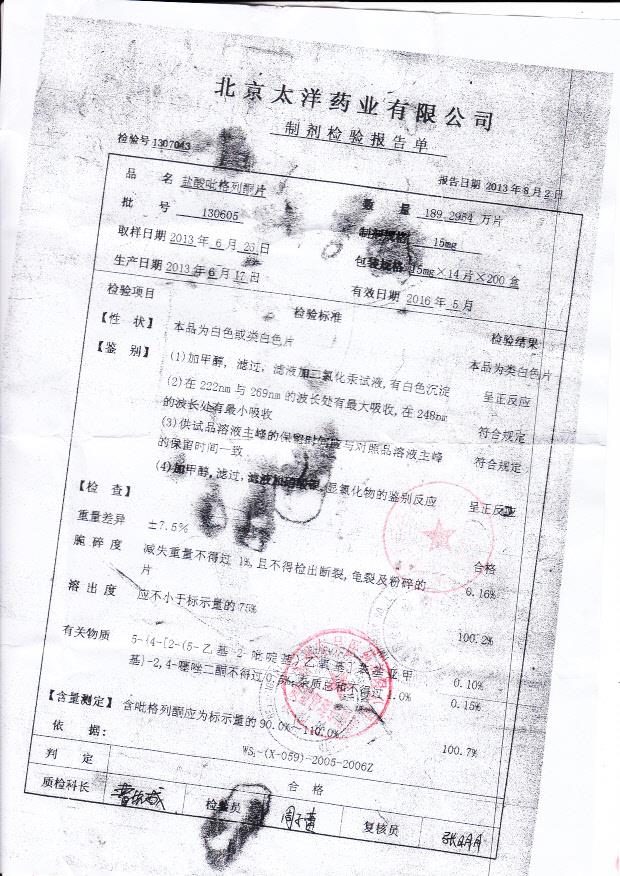 北京太洋药业有限公司
制剂检验报告单
检验号 1307043
报告日期 2013年8月2日
品 名 盐酸吡格列酮片
数 量 189.2984 万片
批 号 130605
制剂规格 15mg
取样日期 2013年6月23日
包装规格 15mg×14片×200盒
生产日期 2013年6月17日
有效日期 2016年5月
检验项目 检验标准 检验结果
【性 状】 本品为白色或类白色片 本品为类白色片
【鉴 别】 (1)加甲醇,滤过,滤液加二氯化汞试液,有白色沉淀 呈正反应
(2)在222nm与269nm的波长处有最大吸收,在248nm
的波长处有最小吸收 符合规定
(3)供试品溶液主峰的保留时间应与对照品溶液主峰
的保留时间一致 符合规定
(4)加甲醇,滤过,滤液 显氯化物的鉴别反应 呈正反应
【检 查】
重量差异 ±7.5% 合格
脆碎度 减失重量不得过1%,且不得检出断裂,龟裂及粉碎的 0.16%
片
溶出度 应不小于标示量的75% 100.2%
有关物质 5-(4-[2-(5-乙基-2-吡啶基)乙氧基]苯基亚甲
基)-2,4-噻唑二酮不得过0.5% 杂质总和不得过1.0% 0.10%
0.15%
【含量测定】 含吡格列酮应为标示量的90.0%~110.0% 100.7%
依 据: WS₁-(X-059)-2005-2006Z
判 定 合 格
质检科长 检验员 复核员